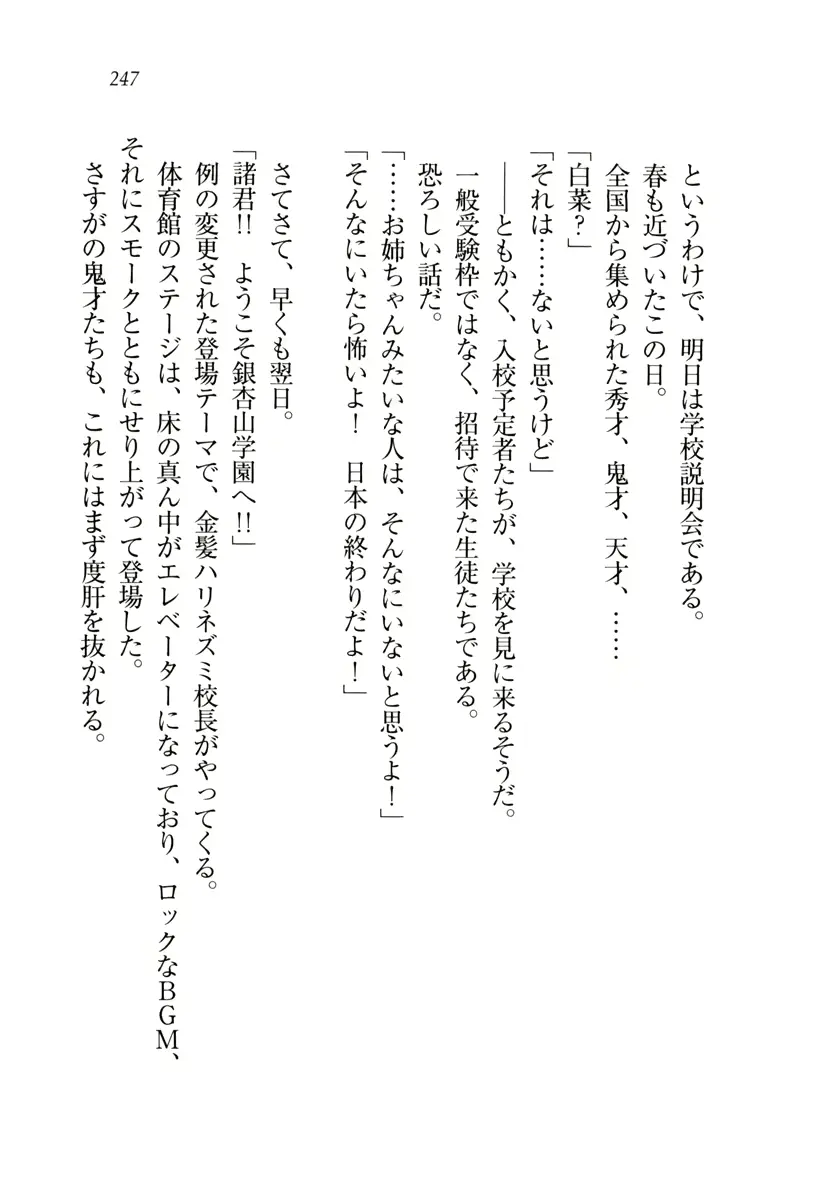 247
というわけで、明日は学校説明会である。
春も近づいたこの日。
全国から集められた秀才、鬼才、天才、……
「白菜？」
「それは……ないと思うけど」
――ともかく、入校予定者たちが、学校を見に来るそうだ。
一般受験枠ではなく、招待で来た生徒たちである。
恐ろしい話だ。
「……お姉ちゃんみたいな人は、そんなにいないと思うよ！」
「そんなにいたら怖いよ！　日本の終わりだよ！」
さてさて、早くも翌日。
「諸君!!　ようこそ銀杏山学園へ!!」
例の変更された登場テーマで、金髪ハリネズミ校長がやってくる。
体育館のステージは、床の真ん中がエレベーターになっており、ロックなＢＧＭ、
それにスモークとともにせり上がって登場した。
さすがの鬼才たちも、これにはまず度肝を抜かれる。